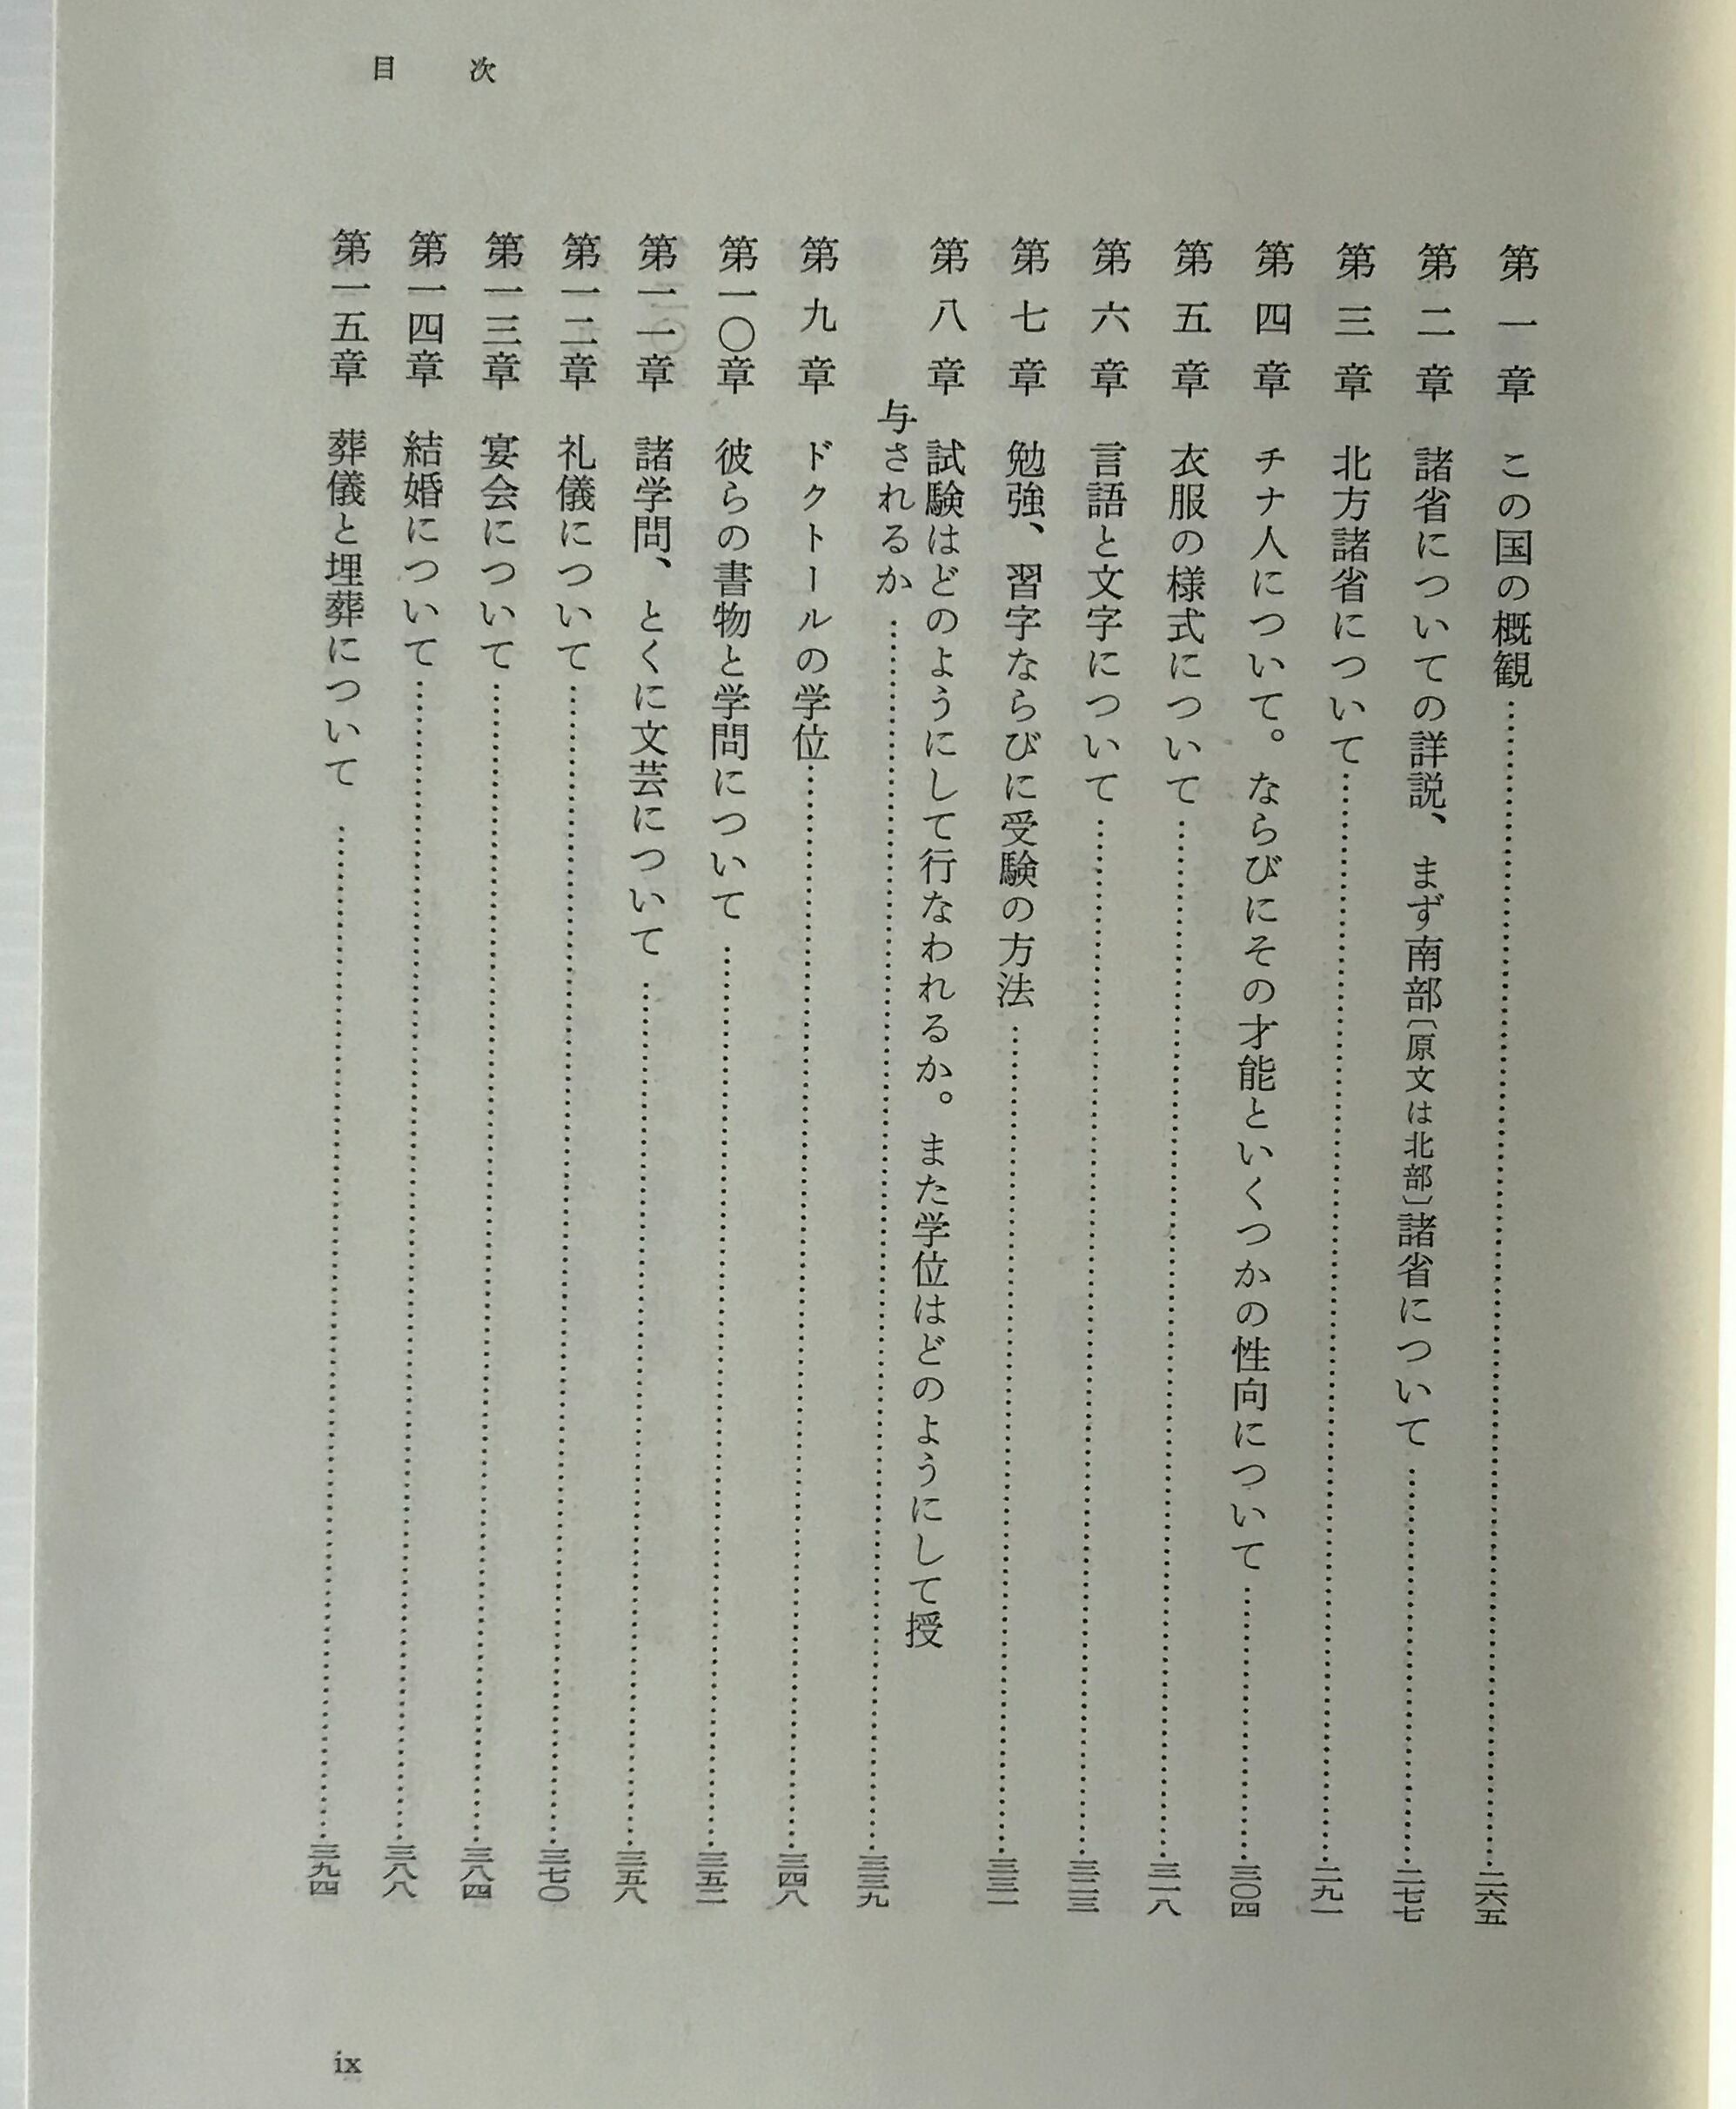 目次
第一章 この国の概観……二六五
第二章 諸省についての詳説、まず南部〔原文は北部〕諸省について……二七七
第三章 北方諸省について……二九一
第四章 チナ人について。ならびにその才能といくつかの性向について……三〇四
第五章 衣服の様式について……三一八
第六章 言語と文字について……三二三
第七章 勉強、習字ならびに受験の方法……三三一
第八章 試験はどのようにして行なわれるか。また学位はどのようにして授
与されるか……三三九
第九章 ドクトールの学位……三四八
第一〇章 彼らの書物と学問について……三五二
第一一章 諸学問、とくに文芸について……三五八
第一二章 礼儀について……三七〇
第一三章 宴会について……三八四
第一四章 結婚について……三八八
第一五章 葬儀と埋葬について……三九四
ix